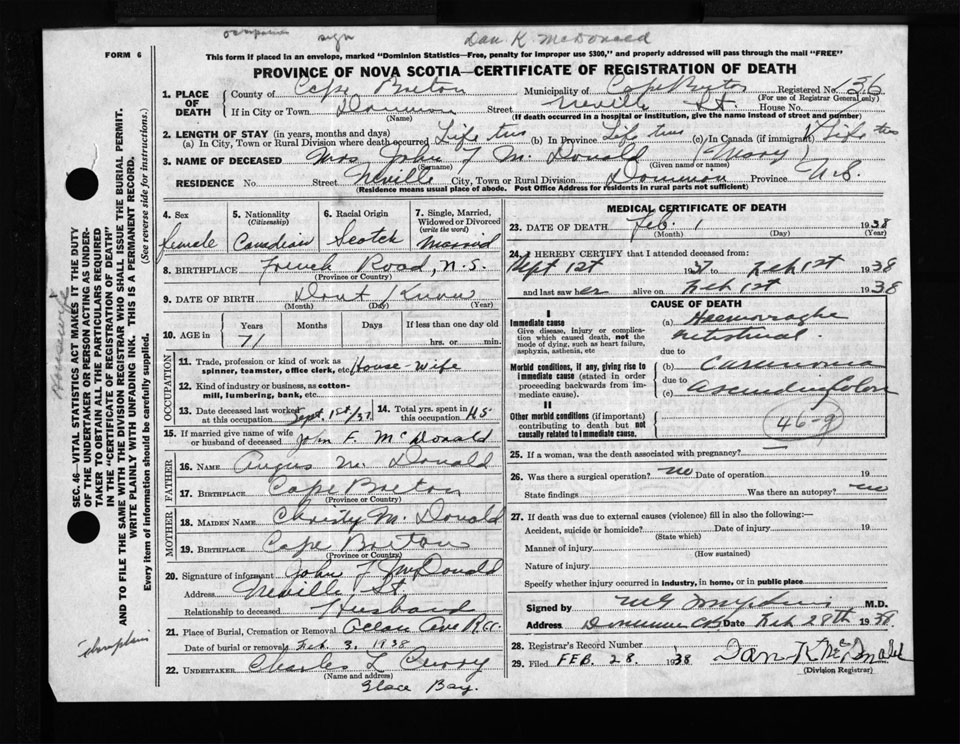 Dan K. McDonald
FORM 6
This form if placed in an envelope, marked "Dominion Statistics—Free, penalty for improper use $300," and properly addressed will pass through the mail "FREE"
PROVINCE OF NOVA SCOTIA—CERTIFICATE OF REGISTRATION OF DEATH
1. PLACE OF DEATH
County of Cape Breton Municipality of Cape Breton Registered No. 136
(For use of Registrar General only)
If in City or Town Dominion Street Neville St House No.
(Name) (If death occurred in a hospital or institution, give the name instead of street and number)
2. LENGTH OF STAY (in years, months and days)
(a) In City, Town or Rural Division where death occurred Life time (b) In Province Life time (c) In Canada (if immigrant) Life time
3. NAME OF DECEASED Mrs John F McDonald (Mary)
(Surname) (Given name or names)
RESIDENCE No. Street Neville City, Town or Rural Division Dominion Province N.S.
Residence means usual place of abode. Post Office Address for residents in rural parts not sufficient)
4. Sex female
5. Nationality (Citizenship) Canadian
6. Racial Origin Scotch
7. Single, Married, Widowed or Divorced (write the word) Married
8. BIRTHPLACE French Road, N.S.
(Province or Country)
9. DATE OF BIRTH Dont Know
(Month) (Day) (Year)
10. AGE in Years Months Days If less than one day old
71 hrs. or min.
OCCUPATION
11. Trade, profession or kind of work as spinner, teamster, office clerk, etc House-wife
12. Kind of industry or business, as cotton-mill, lumbering, bank, etc.
13. Date deceased last worked at this occupation Sept 1st/37
14. Total yrs. spent in this occupation 45
15. If married give name of wife or husband of deceased John F. McDonald
FATHER
16. NAME Angus McDonald
17. BIRTHPLACE Cape Breton
(Province or Country)
MOTHER
18. MAIDEN NAME Christy McDonald
19. BIRTHPLACE Cape Breton
(Province or Country)
20. Signature of informant John F McDonald
Address Neville St.
Relationship to deceased Husband
21. Place of Burial, Cremation or Removal
Date of burial or removal Feb. 3, 1938
22. UNDERTAKER Charles L Curry
(Name and address)
Glace Bay.
MEDICAL CERTIFICATE OF DEATH
23. DATE OF DEATH Feb. 1 1938
(Month) (Day) (Year)
24. I HEREBY CERTIFY that I attended deceased from:
Sept 1st 1937 to Feb 1st 1938
and last saw her alive on Feb 1st 1938
CAUSE OF DEATH
I
Immediate cause (a) Haemorraghe
Give disease, injury or complication which caused death, not the mode of dying, such as heart failure, asphyxia, asthenia, etc intestinal
due to
Morbid conditions, if any, giving rise to immediate cause (stated in order proceeding backwards from immediate cause) (b) Carcinoma
due to
(c) ascending Colon
II
Other morbid conditions (if important) contributing to death but not causally related to immediate cause. 46-g
25. If a woman, was the death associated with pregnancy?
26. Was there a surgical operation? no Date of operation 19
State findings Was there an autopsy? no
27. If death was due to external causes (violence) fill in also the following:—
Accident, suicide or homicide? Date of injury 19
(State which)
Manner of injury
(How sustained)
Nature of injury
Specify whether injury occurred in industry, in home, or in public place
Signed by M.D.
Address Dominion C.B. Date Feb 28th 1938.
28. Registrar's Record Number
29. Filed FEB. 28. 1938 Dan K McDonald
(Division Registrar)
SEC. 46—VITAL STATISTICS ACT MAKES IT THE DUTY
OF THE UNDERTAKER OR PERSON ACTING AS UNDERTAKER
TO OBTAIN ALL THE PARTICULARS REQUIRED
IN THE "CERTIFICATE OF REGISTRATION OF DEATH"
AND TO FILE THE SAME WITH THE DIVISION REGISTRAR WHO SHALL ISSUE THE BURIAL PERMIT.
WRITE PLAINLY WITH UNFADING INK. THIS IS A PERMANENT RECORD.
Every item of information should be carefully supplied. (See reverse side for instructions.)
Housewife